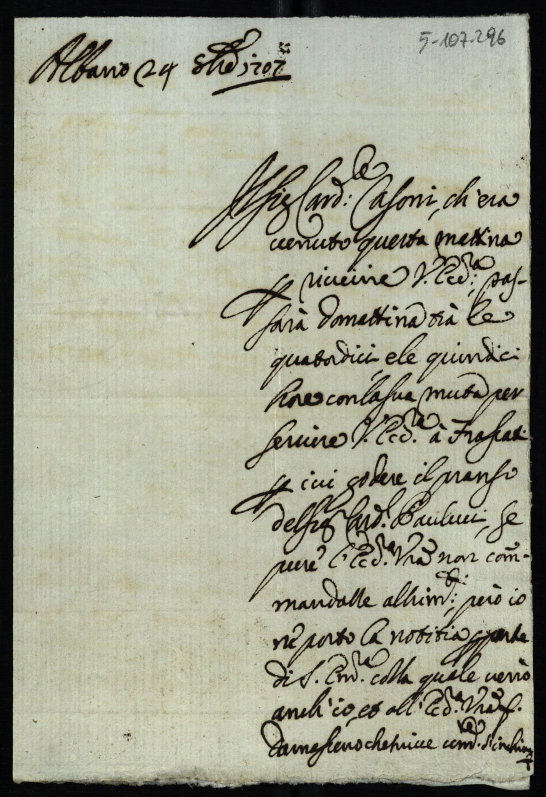 5-107-296
Albano 24 8bre 1707
Il Sig.r Card:le Casoni, ch'era
venuto questa mattina
p riverire V. Ecc:za, pas-
sarà domattina trà le
quatordici, e le quindici
hore con la sua muta per
servire V. Ecc.za à Frascati
p ivi godere il pranso
del Sig.r Card.l Paulucci, se
pure l'Ecc.za Vra non com-
mandasse altrim:ti; però io
ne porto la notitia p parte
di S. Em.za colla quale verrò
anch'io, et all'Ecc.za Vra